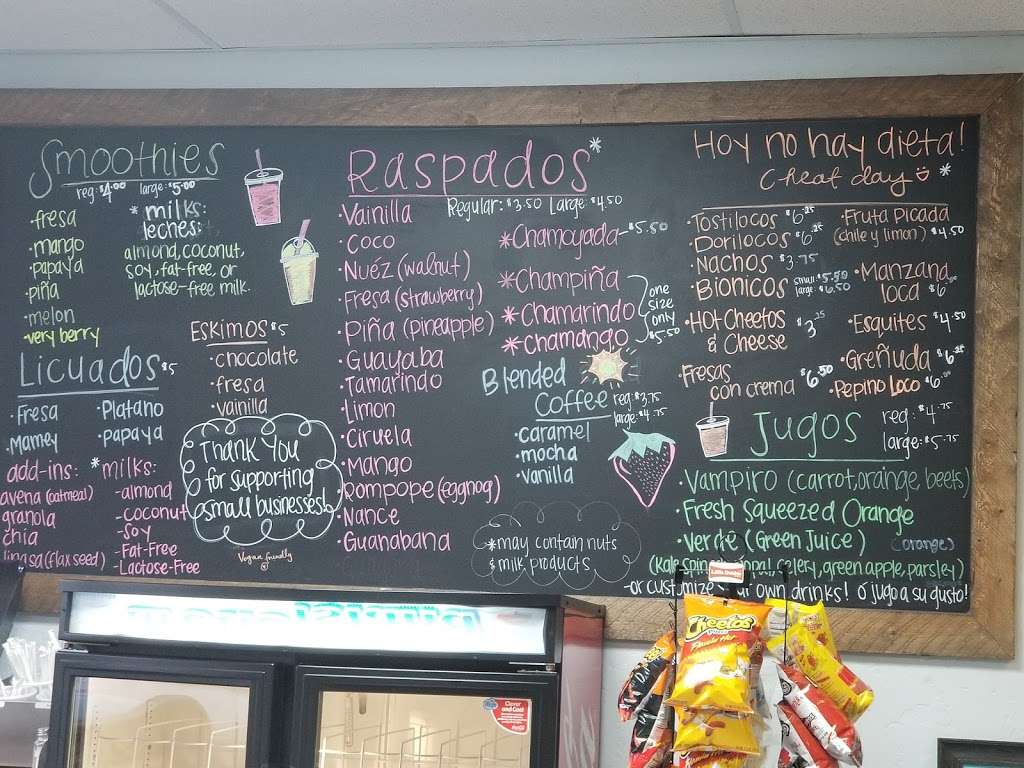 Smoothies
reg: $4.00 large: $5.00
• fresa
• mango
• papaya
• piña
• melon
• very berry
* milks:
leches:
almond, coconut,
soy, fat-free, or
lactose-free milk.
Licuados $5
• Fresa
• Mamey
• Platano
• papaya
add-ins:
avena (oatmeal)
granola
chia
linasa (flax seed)
* milks:
- almond
- coconut
- Soy
- Fat-Free
- Lactose-Free
Eskimos $5
• chocolate
• fresa
• vainilla
Thank You
for supporting
small businesses!
Vegan friendly
Raspados*
Regular: $3.50 Large $4.50
• Vainilla
• Coco
• Nuéz (walnut)
• Fresa (strawberry)
• Piña (pineapple)
• Guayaba
• Tamarindo
• Limon
• Ciruela
• Mango
• Rompope (eggnog)
• Nance
• Guanabana
* Chamoyada - $5.50
* Champiña
* Chamarindo
* Chamango
one
size
only
$5.50
Blended
Coffee
reg: $3.75
large: $4.75
• caramel
• mocha
• vanilla
*may contain nuts
& milk products
Hoy no hay dieta!
Cheat day *
• Tostilocos $6.25
• Dorilocos $6.25
• Nachos $3.75
• Bionicos small: $5.50
large: $6.50
• Hot Cheetos
& Cheese $3.25
• Fresas
con crema $6.50
• Fruta Picada
(chile y limon) $4.50
• Manzana
loca $6.00
• Esquites $4.50
• Greñuda $6.25
• Pepino Loco $6.00
Jugos
reg: $4.75
large: $5.75
• Vampiro (carrot, orange, beets)
• Fresh Squeezed Orange
• Verde (Green Juice)
(orange)
(Kale, spin nopal, celery, green apple, parsley)
- or customize your own drinks! ó jugo a su gusto!
Cheetos
Clever
and Cool